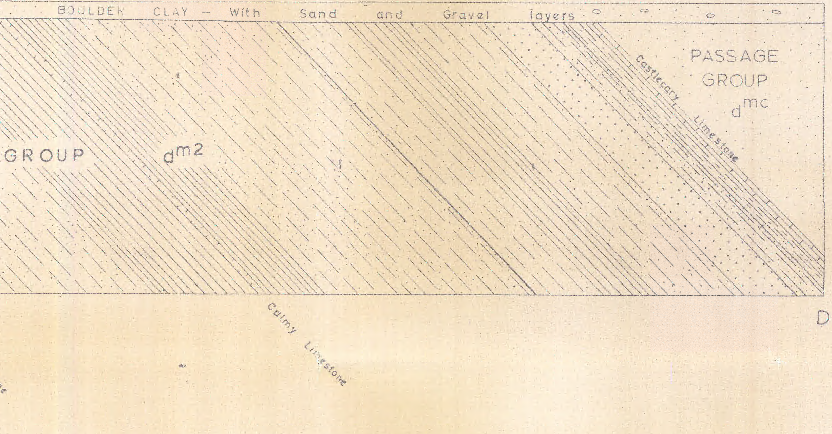 BOULDER CLAY – With Sand and Gravel layers
PASSAGE
GROUP
dmc
Castlecary Limestone
GROUP dm2
Calmy Limestone
D